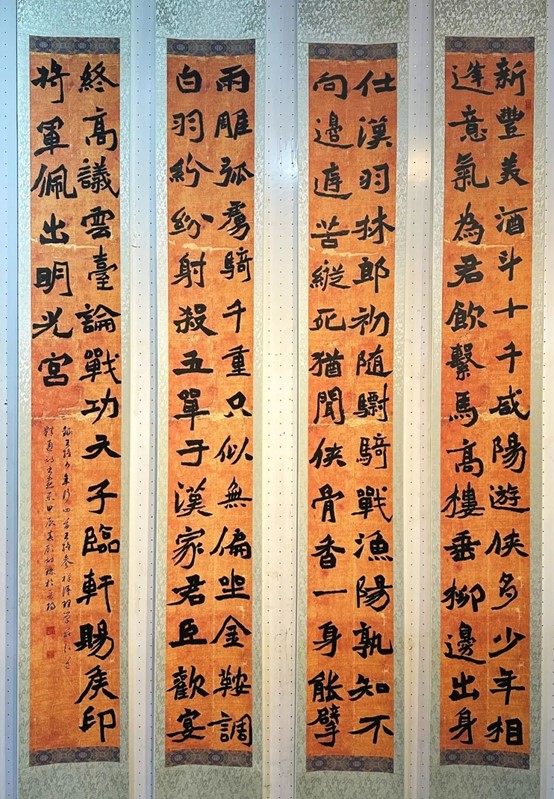 新豐美酒斗十千咸陽遊俠多少年相
逢意氣為君飲繫馬高樓垂柳邊出身
仕漢羽林郎初随驃騎戰漁陽孰知不
向邊庭苦縱死猶聞俠骨香一身能擘
兩雕弧虜騎千重只似無偏坐金鞍調
白羽紛紛射殺五單于漢家君臣歡宴
終高議雲臺論戰功天子臨軒賜侯印
將軍佩出明光宮